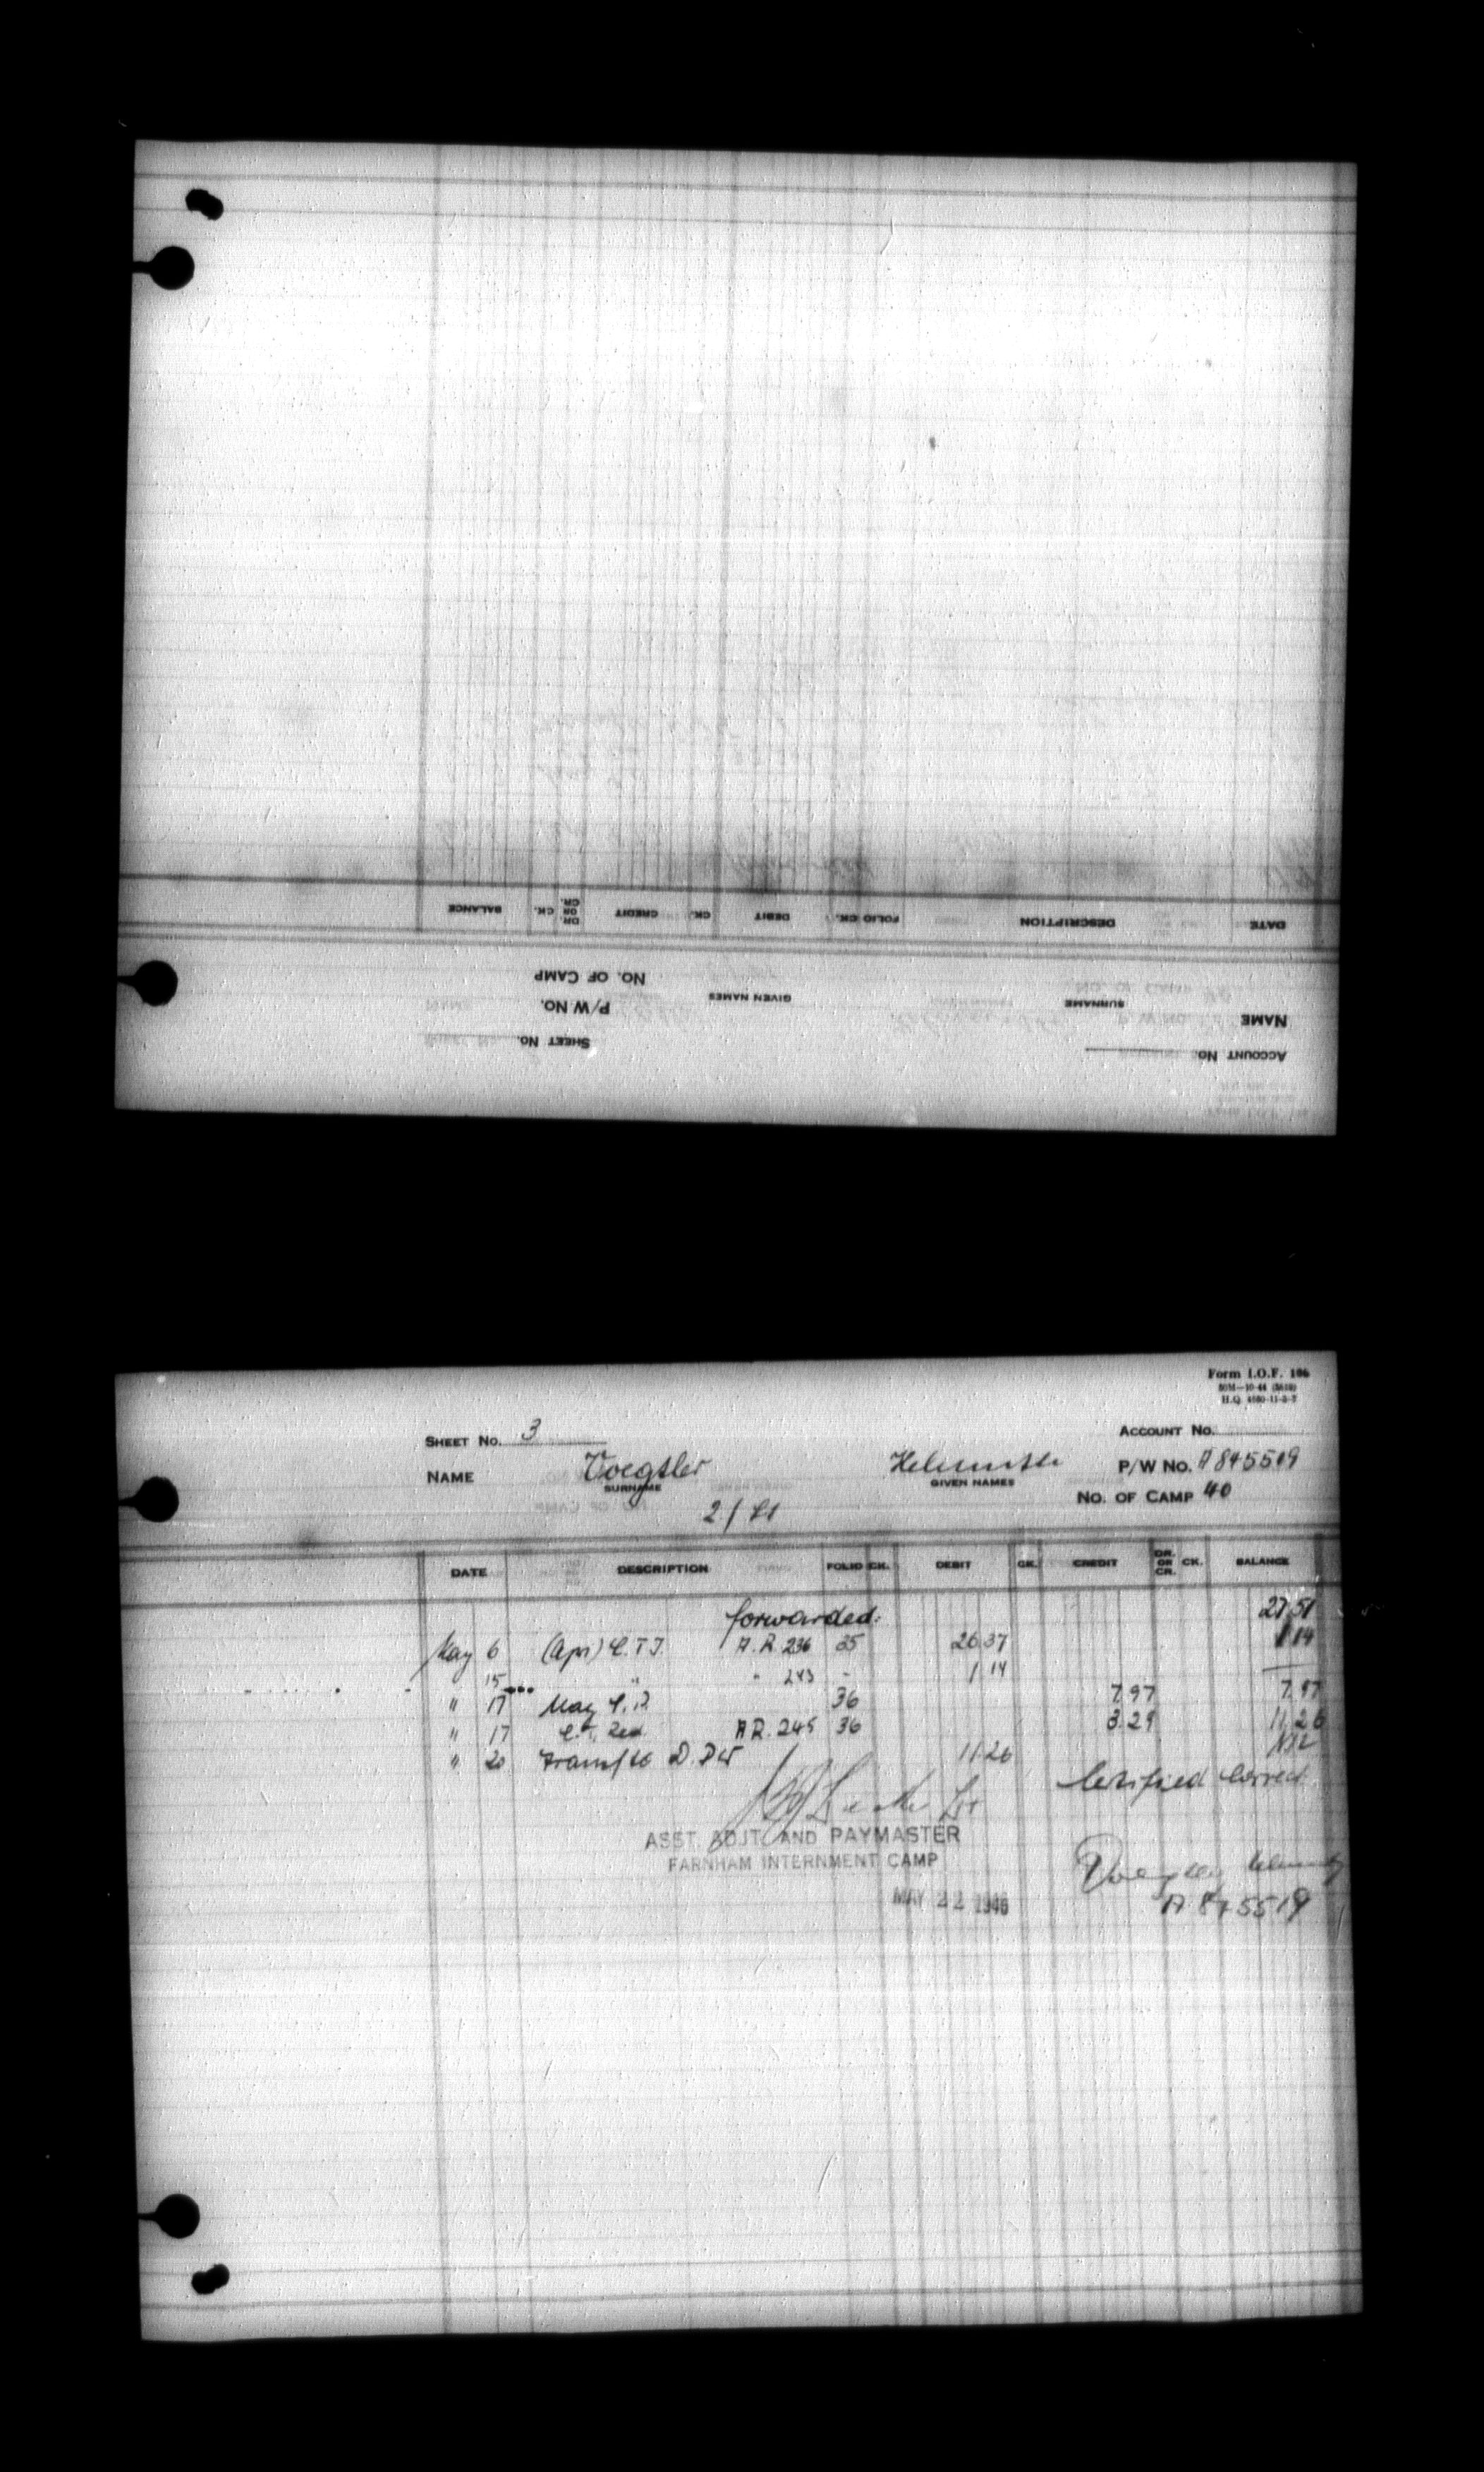 DATE DESCRIPTION FOLIO CK. DEBIT CK. CREDIT DR. OR CR. CK. BALANCE
NAME SURNAME GIVEN NAMES P/W No. No. OF CAMP
ACCOUNT No. SHEET No.
Form I.O.F. 106
50M—10-44 (5618)
H.Q. 4580-11-3-7
SHEET No. 3 ACCOUNT No.
NAME Voegtler Helmuth P/W No. A 845519
SURNAME GIVEN NAMES
No. OF CAMP 40
DATE DESCRIPTION FOLIO CK. DEBIT CK. CREDIT DR. OR CR. CK. BALANCE
forwarded: 27 51
May 6 (Apr) C.T.I. A.R. 236 35 26 37 1 14
15 " " 243 - 1 14
" 17 May 36 7.97 7.97
" 17 A.R. 245 36 3.29 11.26
" 20 Transf to D.P.W 11.26 Nil
Certified correct
ASST. ADJT. AND PAYMASTER
FARNHAM INTERNMENT CAMP
MAY 22 1946
A 845519